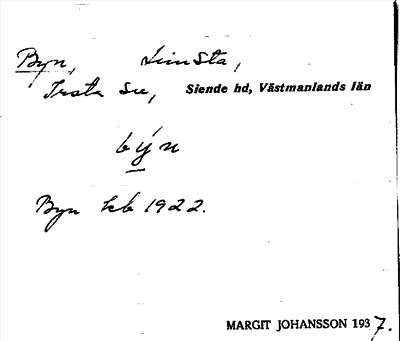 Byn, Limsta,
Irsta sn, Siende hd, Västmanlands län
býn
Byn kb 1922.
MARGIT JOHANSSON 1937.